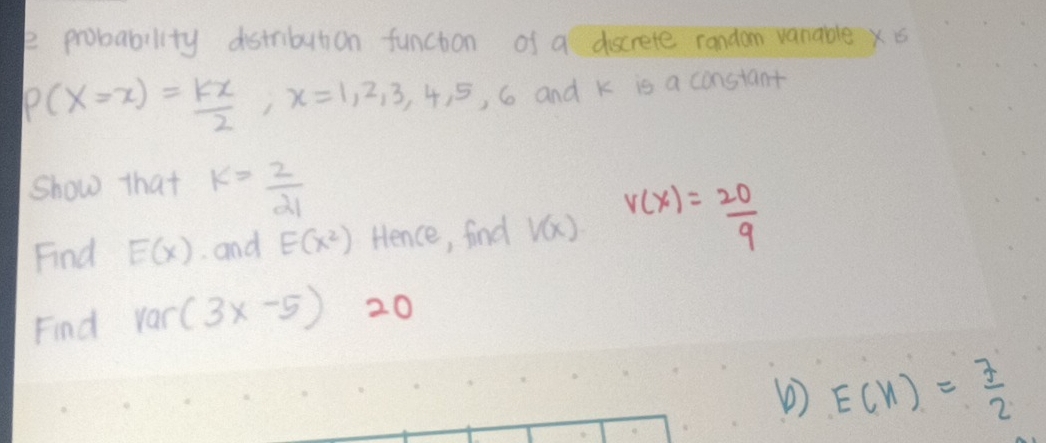 probability distribution function of a discrete random variable x is
P(X=x) = kx/2 , x=1,2,3, 4,5,6 and k is a constant
Show that K= 2/21
V(X) = 20/9
Find E(x). and E(x²) Hence, find V(x).
Find var(3x-5) 20
b) E(X) = 7/2